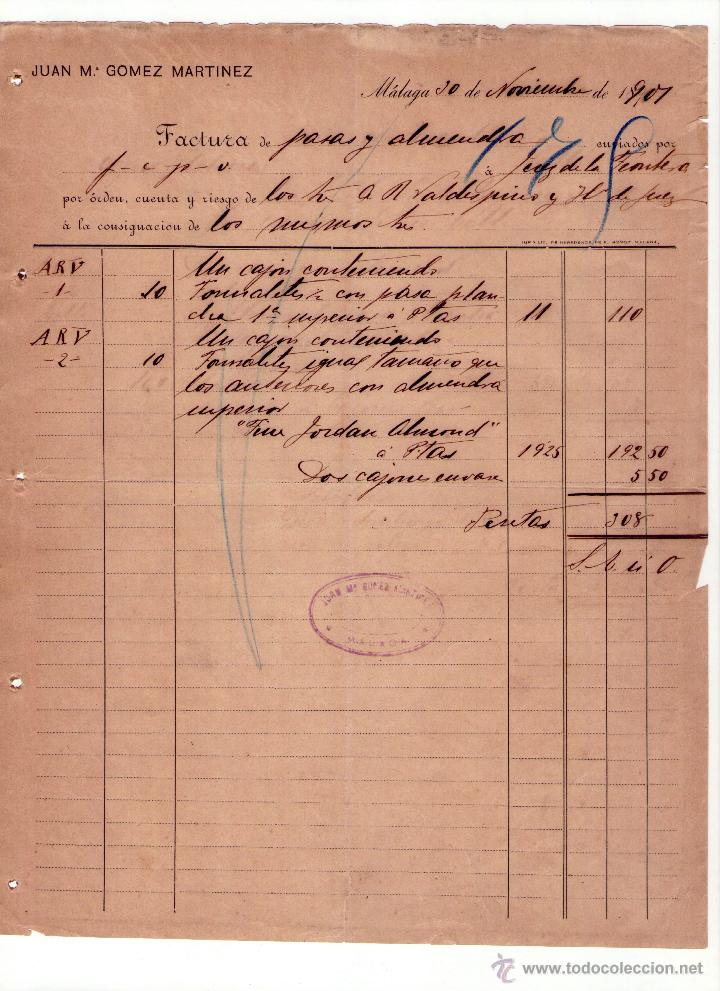 JUAN M.ª GOMEZ MARTINEZ
Málaga 30 de Noviembre de 1901
Factura de pasas y almendra enviados por
f - c p - v. á Jerez de la Frontera
por órden, cuenta y riesgo de los Sres A R Valdespino y Hº de Jerez
á la consignacion de los mismos Sres.
ARV Un cajon conteniendo
-1- 10 Formaletes ½ con pasa plan
cha 1ª superior á Ptas 11 110
ARV Un cajon conteniendo
-2- 10 Formaletes igual tamaño que
los anteriores con almendra
superior
"Fine Jordan Almond"
á Ptas 1925 192 50
Dos cajones envase 5 50
Pesetas 308
S. E. ú O.
JUAN Mª GOMEZ MARTINEZ
MALAGA
www.todocoleccion.net